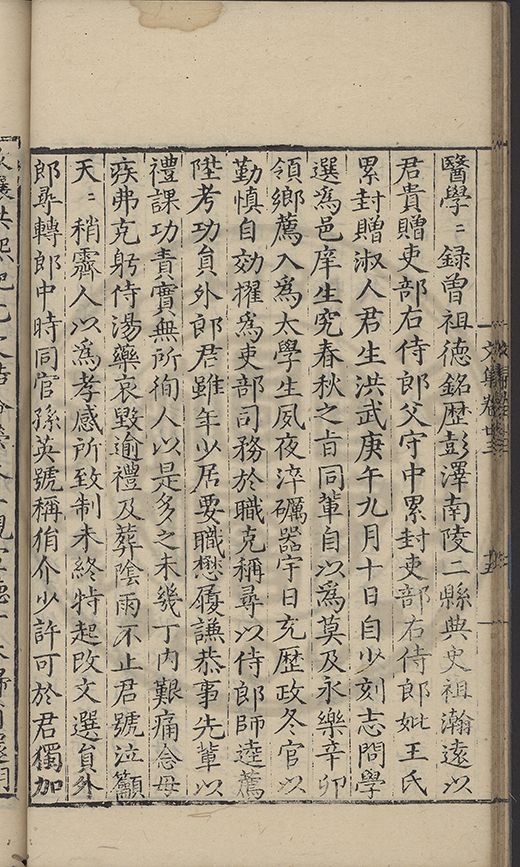 醫學〻錄曾祖德銘歷彭澤南陵二縣典史祖瀚遠以
君貴贈吏部右侍郎父守中累封吏部右侍郎妣王氏
累封贈淑人君生洪武庚午九月十日自少刻志問學
選爲邑庠生究春秋之旨同輩自以爲莫及永樂辛卯
領鄉薦入爲太學生夙夜淬礪器宇日充歷政冬官以
勤慎自効擢爲吏部司務於職克稱尋以侍郎師逵薦
陞考功員外郎君雖年少居要職懋履謙恭事先輩以
禮課功責實無所徇人以是多之未幾丁內艱痛念母
疾弗克躬侍湯藥哀毀逾禮及葬陰雨不止君號泣籲
天〻稍霽人以爲孝感所致制未終特起改文選員外
郎尋轉郎中時同官孫英號稱狷介少許可於君獨加
文集卷廿三